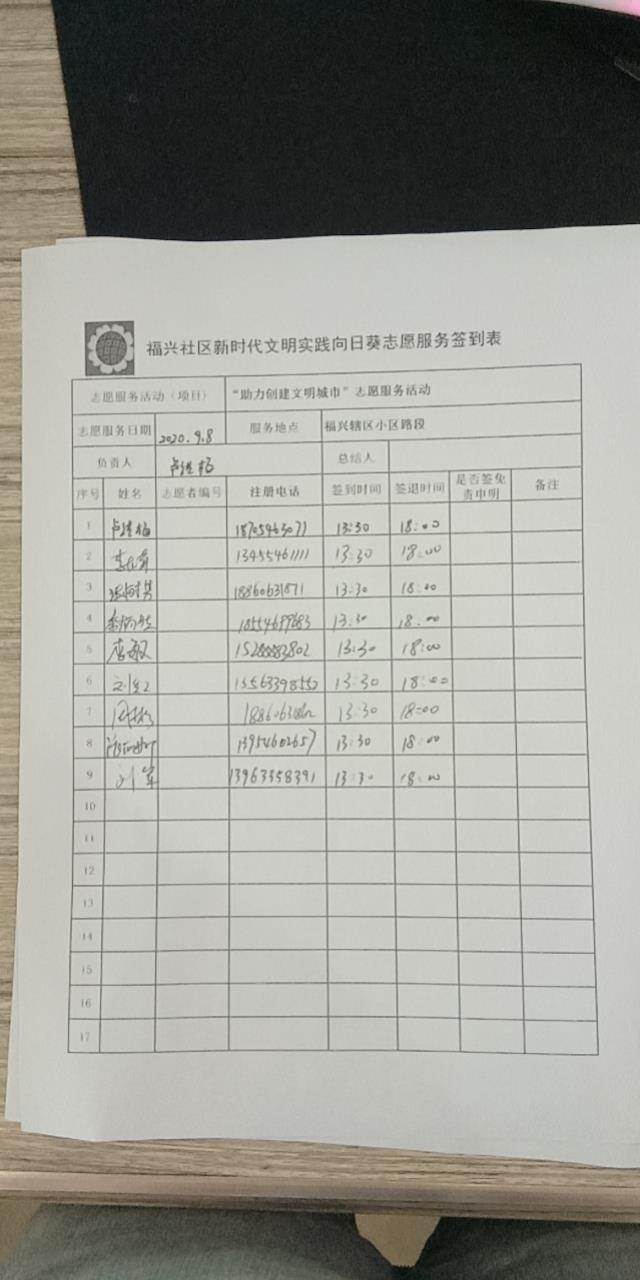 福兴社区新时代文明实践向日葵志愿服务签到表
志愿服务活动（项目） “助力创建文明城市”志愿服务活动
志愿服务日期 2020.9.8 服务地点 福兴辖区小区路段
负责人 总结人
序号 姓名 志愿者编号 注册电话 签到时间 签退时间 是否签免责申明 备注
1 18705463077 13:30 18:00
2 13455461111 13:30 18:00
3 18860631871 13:30 18:00
4 13:30 18:00
5 13:30 18:00
6 13:30 18:00
7 13:30 18:00
8 13954602657 13:30 18:00
9 刘军 13963358391 13:30 18:00
10
11
12
13
14
15
16
17